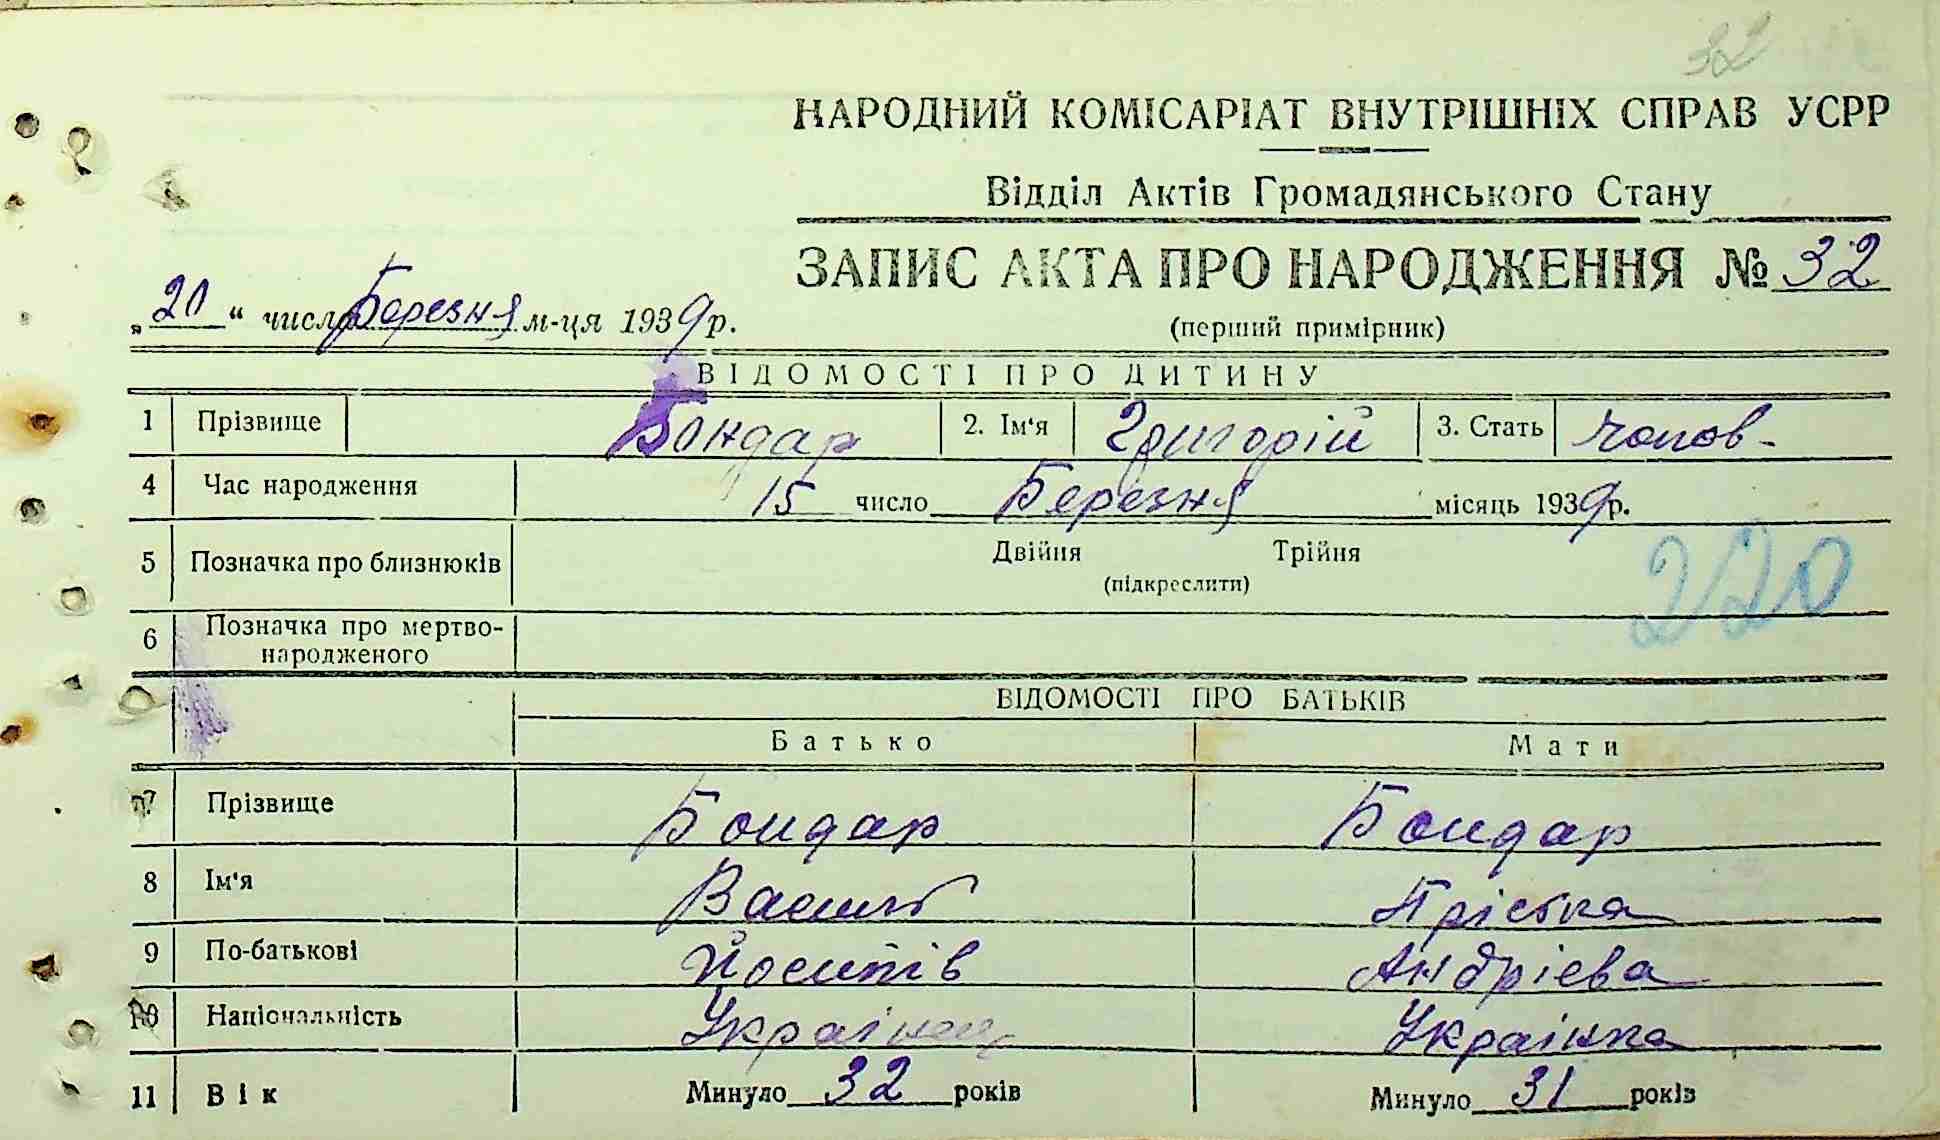 32
НАРОДНИЙ КОМІСАРІАТ ВНУТРІШНІХ СПРАВ УСРР
Відділ Актів Громадянського Стану
ЗАПИС АКТА ПРО НАРОДЖЕННЯ № 32
„20“ число Березня м-ця 1939 р.
(перший примірник)
ВІДОМОСТІ ПРО ДИТИНУ
1 Прізвище Бондар 2. Ім'я Григорій 3. Стать чолов-
4 Час народження 15 число Березня місяць 1939 р.
5 Позначка про близнюків Двійня Трійня
(підкреслити)
220
6 Позначка про мертво-
народженого
ВІДОМОСТІ ПРО БАТЬКІВ
Батько Мати
7 Прізвище Бондар Бондар
8 Ім'я Василь Пріська
9 По-батькові Йосипів Андрієва
10 Національність Українец Українка
11 Вік Минуло 32 років Минуло 31 років